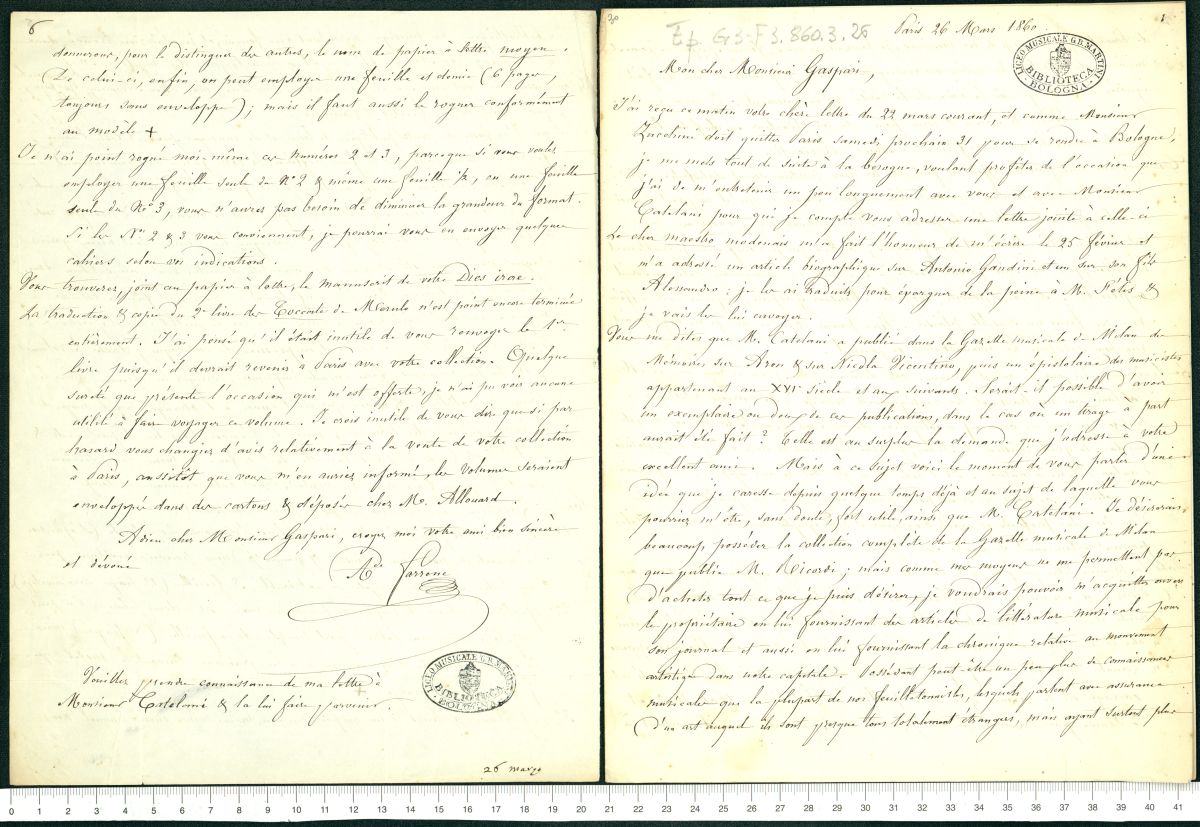 6
donnerons, pour le distinguer des autres, le nom de papier à lettre moyen.
(De celui-ci, enfin, on peut employer une feuille et demie (6 pages,
toujours sous enveloppe); mais il faut aussi le rogner conformément
au modèle +
Je n'ai point rogné moi-même ces Numéros 2 et 3, parceque si vous voulez
employer une feuille seule du No 2 & même une feuille ½, ou une feuille
seule du No 3, vous n'aurez pas besoin de diminuer la grandeur du format.
Si les Nos 2 & 3 vous conviennent, je pourrai vous en envoyer quelques
cahiers selon vos indications.
Vous trouverez, joint au papier à lettre, le manuscrit de votre Dies irae.
La traduction & copie du 2e livre des Toccate de Merulo n'est point encore terminée
entièrement. J'ai pensé qu'il était inutile de vous renvoyer le 1er
livre puisqu'il devrait revenir à Paris avec votre collection. Quelque
sureté que présente l'occasion qui m'est offerte, je n'ai pu voir aucune
utilité à faire voyager ce volume. Je crois inutile de vous dire que si par
hasard vous changiez d'avis relativement à la vente de votre collection
à Paris, aussitôt que vous m'en auriez informé, les volumes seraient
enveloppés dans des cartons & déposés chez M. Allouard.
Adieu cher Monsieur Gaspari, croyez moi votre ami bien sincère
et dévoué
Ade Farrenc
Veuillez prendre connaissance de ma lettre à
Monsieur Catelani & la lui faire parvenir.
LICEO MUSICALE G.B. MARTINI
BIBLIOTECA
BOLOGNA
26 marzo
30
1
Ep. GS-F3.860.3.26
Paris 26 Mars 1860
LICEO MUSICALE G.B. MARTINI
BIBLIOTECA
BOLOGNA
Mon cher Monsieur Gaspari,
J'ai reçu ce matin votre chère lettre du 22 mars courant, et comme Monsieur
Zucchini doit quitter Paris samedi prochain 31, pour se rendre à Bologne,
je me mets tout de suite à la besogne, voulant profiter de l'occasion que
j'ai de m'entretenir un peu longuement avec vous et avec Monsieur
Catelani pour qui je compte vous adresser une lettre jointe à celle-ci
Le cher maestro modenais m'a fait l'honneur de m'écrire le 25 février et
m'a adressé un article biographique sur Antonio Gandini et un sur son fils
Alessandro. je les ai traduits pour épargner de la peine à M. Fétis &
je vais les lui envoyer.
Vous me dites que M. Catelani a publié dans la Gazette musicale de Milan des
Mémoires sur Aron & sur Nicola Vicentino, puis un epistolaire des musicistes
appartenant au XVIe siècle et aux suivants. Serait-il possible d'avoir
un exemplaire ou deux de ces publications, dans le cas où un tirage à part
aurait été fait? Telle est au surplus la demande que j'adresse à votre
excellent ami. Mais à ce sujet voici le moment de vous parler d'une
idée que je caresse depuis quelque temps déjà et au sujet de laquelle vous
pourriez m'être, sans doute, fort utile, ainsi que M. Catelani. Je désirerais
beaucoup posséder la collection complète de la Gazette musicale de Milan
que publie M. Ricordi; mais comme mes moyens ne me permettent pas
d'acheter tout ce que je puis désirer, je voudrais pouvoir m'acquitter envers
le propriétaire en lui fournissant des articles de littérature musicale pour
son journal et aussi en lui fournissant la chronique relative au mouvement
artistique dans notre capitale. Possédant peut-être un peu plus de connaissances
musicales que la plupart de nos feuilletonnistes, lesquels parlent avec assurance
d'un art auquel ils sont presque tous totalement étrangers, mais ayant surtout plus